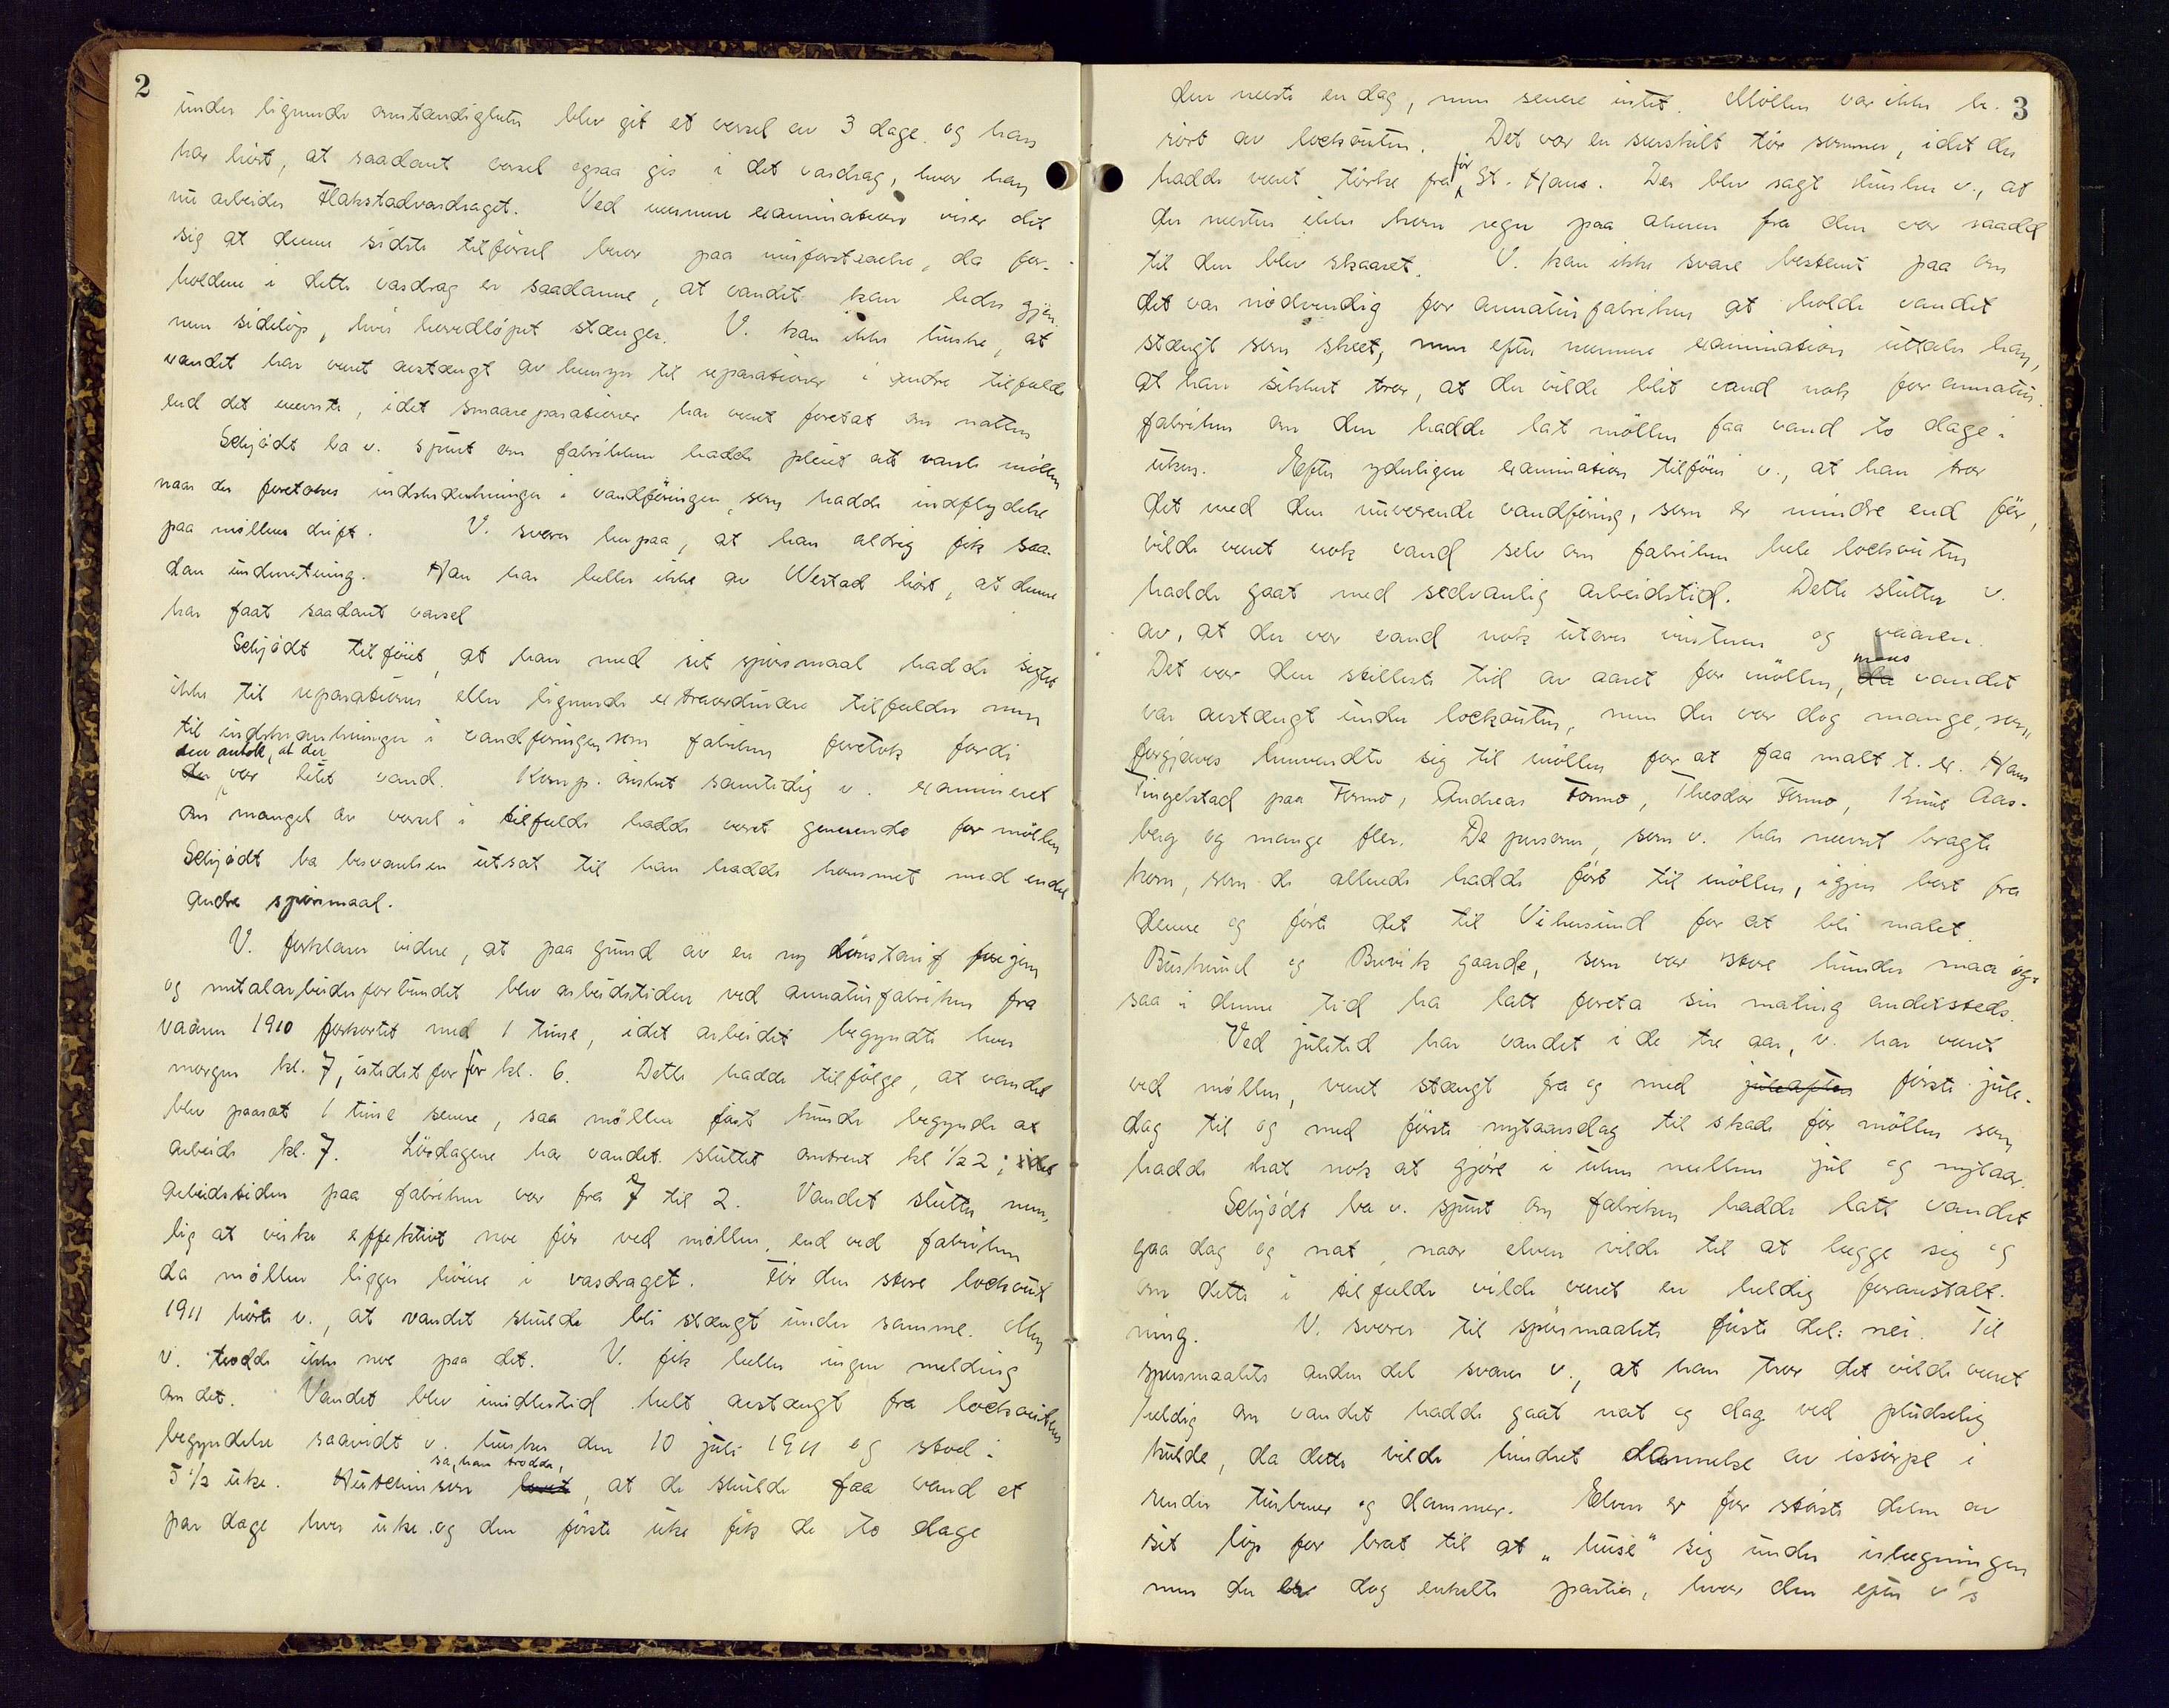 2
under lignende omstændigheter blev git et varsel av 3 dage og han
har hört, at saadant varsel ogsaa gis i det vasdrag, hvor han
nu arbeider Flakstadvasdraget. Ved nærmere examination viser det
sig at denne sidste tilförsel beror paa misforstaaelse, da for-
holdene i dette vasdrag er saadanne, at vandet kan ledes gjen-
nem sidelöp, hvis hovedlöpet stænges. V. kan ikke huske, at
vandet har været avstængt av hensyn til reparationer i andre tilfælde
end det nævnte, idet smaareparationer har været foretat om natten
Schjödt ba v. spurt om fabrikken hadde pleiet at varsle möllen
naar der foretokes indskrænkninger i vandföringen, som hadde indflydelse
paa möllens drift. V. svarer herpaa, at han aldrig fik saa-
dan underretning. Han har heller ikke av Westad hört, at denne
har faat saadant varsel
Schjödt tilföiet, at han med sit spörsmaal hadde sigtet
ikke til reparationer eller lignende extraordinære tilfælder men
til indskrænkninger i vandföringen som fabriken foretok fordi
den antok, at der
der var litet vand. Komp. önsket samtidig v. examineret
om mangel av varsel i tilfælde hadde været generende for möllen
Schjödt ba besvarelsen utsat til han hadde kommet med endel
andre spörsmaal.
V. forklarer videre, at paa grund av en ny lönstarif
og metalarbeiderforbundet blev arbeidstiden ved armaturfabriken fra
vaaren 1910 forkortet med 1 time, idet arbeidet begyndte hver
morgen kl. 7, istedet for för kl. 6. Dette hadde tilfölge, at vandet
blev paasat 1 time senere, saa möllen först kunde begynde at
arbeide kl. 7. Lördagene har vandet sluttet omtrent kl ½2; idet
arbeidstiden paa fabriken var fra 7 til 2. Vandet slutter nem-
lig at virke effektivt noe för ved möllen, end ved fabriken
da möllen ligger höiere i vasdraget. För den store lockout
1911 hörte v., at vandet skulde bli stængt under samme. Men
v. trodde ikke noe paa det. V. fik heller ingen melding
om det. Vandet blev imidlertid helt avstængt fra lockoutens
begyndelse saavidt v. husker den 10 juli 1911 og stod i
5 ½ uke.
sa, han trodde,
at de skulde faa vand et
par dage hver uke og den förste uke fik de to dage
3
den næste en dag, men senere intet. Möllen var ikke be-
rört av lockouten. Det var en særskilt tör sommer, idet der
hadde været törke fra för St. Hans. Der blev sagt husker v., at
der næsten ikke kom regn paa akeren fra den var saadd
til den blev skaaret. V. kan ikke svare bestemt paa om
det var nödvendig for armaturfabriken at holde vandet
stængt som skeet, men efter nærmere examination uttaler han,
at han sikkert tror, at der vilde blit vand nok for armatur-
fabriken om den hadde lat möllen faa vand to dage i
uken. Efter yderligere examination tilföier v., at han tror
det med den nuværende vandföring, som er mindre end för,
vilde været nok vand selv om fabriken hele lockouten
hadde gaat med sedvanlig arbeidstid. Dette slutter v.
av, at der var vand nok utover vinteren og vaaren.
Det var den stilleste tid av aaret for möllen, da mens vandet
var avstængt under lockouten, men der var dog mange, som
forgjæves henvendte sig til möllen for at faa malt t. ex. Hans
Tingelstad paa Formo, Andreas Formo, Theodor Formo, Knut Aas-
berg og mange fler. De personer, som v. har nævnt bragte
korn, som de allerede hadde fört til möllen, igjen bort fra
denne og förte det til Vikersund for at bli malet.
Buskerud og Buvik gaarde, som var store kunder maa og-
saa i denne tid ha latt foreta sin maling andetsteds.
Ved juletid har vandet i de tre aar, v. har været
ved möllen, været stængt fra og med juleaften förste jule-
dag til og med förste nytaarsdag til skade for möllen som
hadde hat nok at gjöre i uken mellem jul og nytaar.
Schjödt ba v. spurt om fabriken hadde latt vandet
gaa dag og nat, naar elven vilde til at lægge sig og
om dette i tilfælde vilde været en heldig foranstalt-
ning. V. svarer til spörsmaalets förste del: nei. Til
spörsmaalets anden del svarer v., at han tror det vilde været
heldig om vandet hadde gaat nat og dag ved pludselig
kulde, da dette vilde hindret dannelse av issörpe i
render turbiner og dammer. Elven er for störste delen av
sit löp for brat til at „huse" sig under islægningen
men der er dog enkelte partier, hvor den efter v's